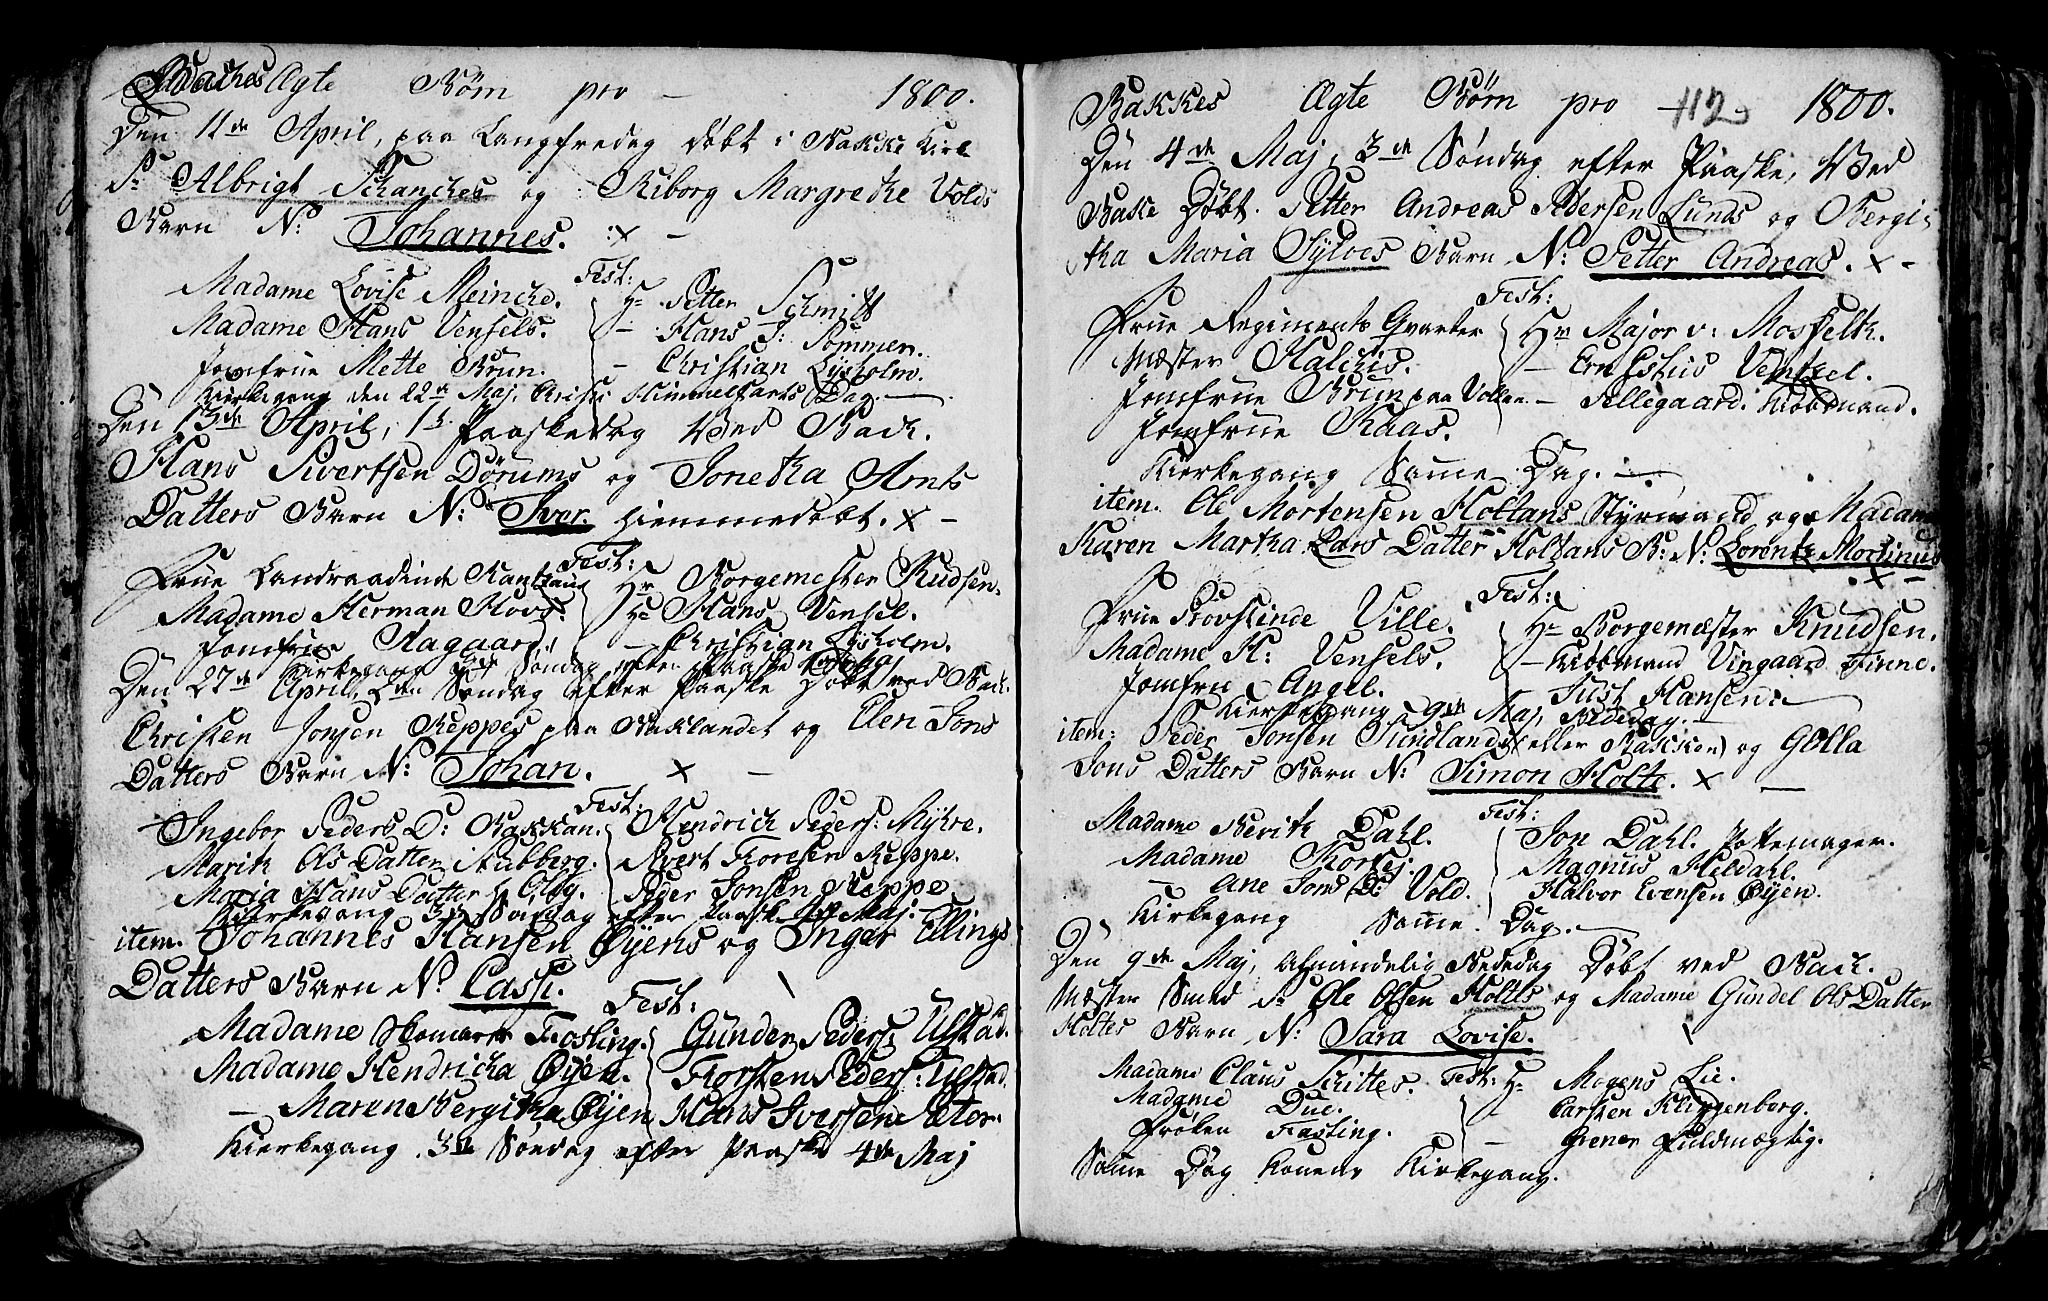 Backes Ægte Børn pro — 1800.
Den 11de April, paa Langfredag døbt i Bakke Kirke
Sr Albrigt Schanches og Riborg Margrethe Volds
Barn N: Johannes. :x —
Fest:
Madame Lovise Meincke. Hr Petter Schmitt
Madame Hans Vensels. — Hans J: Sommer.
Jomfrue Mette Brun. — Christian Lysholm.
Kirkegang den 22de Maj, Christi Himmelfarts Dag.
Den 13de April, 1ste Paaskedag Ved Back.
Hans Sivertsen Dørums og Jonetka Arnts
Datters Barn N: Iver. hiemmedøbt. x —
Fest:
Frue Landraadinde Hr Borgemester Knudsen.
Madame Herman Hovs. Hr Hans Vensel.
Jomfrue Aagaard. — Christian Lysholm.
Kirkegang Søndag efter Paaske
Den 27de April, 2den Søndag efter Paaske Døbt ved Back.
Christen Jonsen Reppes paa Baklandet og Elen Jons
Datters Barn N: Johan. x —
Fest:
Ingebor Peders D: Bakkan. Hendrich Peders: Myhre.
Marith Ols Datter Stubberg. Sivert Toresen Reppe.
Maria Hans Datter Olby. Peder Jonsen Reppe.
Kirkegang 3de Søndag efter Paaske 4de Maj.
item. Johannes Hansen Øyens og Inger Ellings
Datters Barn N. Cassi.
Fest:
Madame Fasting. Gunder Peders: Ulstad.
Madame Hendricka Øyen. Torsten Peders: Ulstad.
— Maren Bergitha Øyen Hans Iversen Sæter.
Kirkegang 3de Søndag efter Paaske 4de Maj
Bakkes Ægte Børn pro — 112 1800.
Den 4de Maj, 3de Søndag efter Paaske, Ved
Bake Døbt. Petter Andreas Pedersen Lunds og Bergi-
tha Maria Sylves Barn N: Petter Andreas. x —
Fest:
Frue Regiments Qvarteer Hr Major v: Mosfelth.
Mæster Halchis. — Ernestus Ventzel.
Jomfrue Brun paa Vollen. — Pillegaard. Kiøbmand.
Jomfrue Kaas.
Kirkegang Samme Dag. —
item. Ole Mortensen Holtans Styrmand og Madame
Karen Martha Lars Datter Holtans B: N: Lorentz Mortinus
x —
Fest:
Frue Provstinde Ville. Hr Borgemæster Knudsen.
Madame H: Vensels. — Kiøbmand Vingaard Finne.
Jomfru Angel. — Just Hansen.
Kirkegang 9de Maj, Bededag.
item: Peder Jonsen Sundlands (eller Bakken) og Gølla
Jons Datters Barn N: Simon Holte. x —
Fest:
Madame Berith Dahl. Jon Dahl. Pottemager.
Madame Magnus Heldahl.
— Ane Jons D: Vold. Halvor Evensen Øyen.
Kirkegang Samme Dag. —
Den 9de Maj, Almindelig Bededag Døbt ved Back.
Mæster Smed Sr Ole Olsen Holtes og Madame Gundel Ols Datter
Holtes Barn N: Sara Lovise.
Madame Claus Schittes. Fest: Hr Mogens Lie.
Madame Due. — Carsten Klingenberg.
Frøken Fasting. — Grener Fuldmægtig.
Samme Dag Konens Kirkegang.